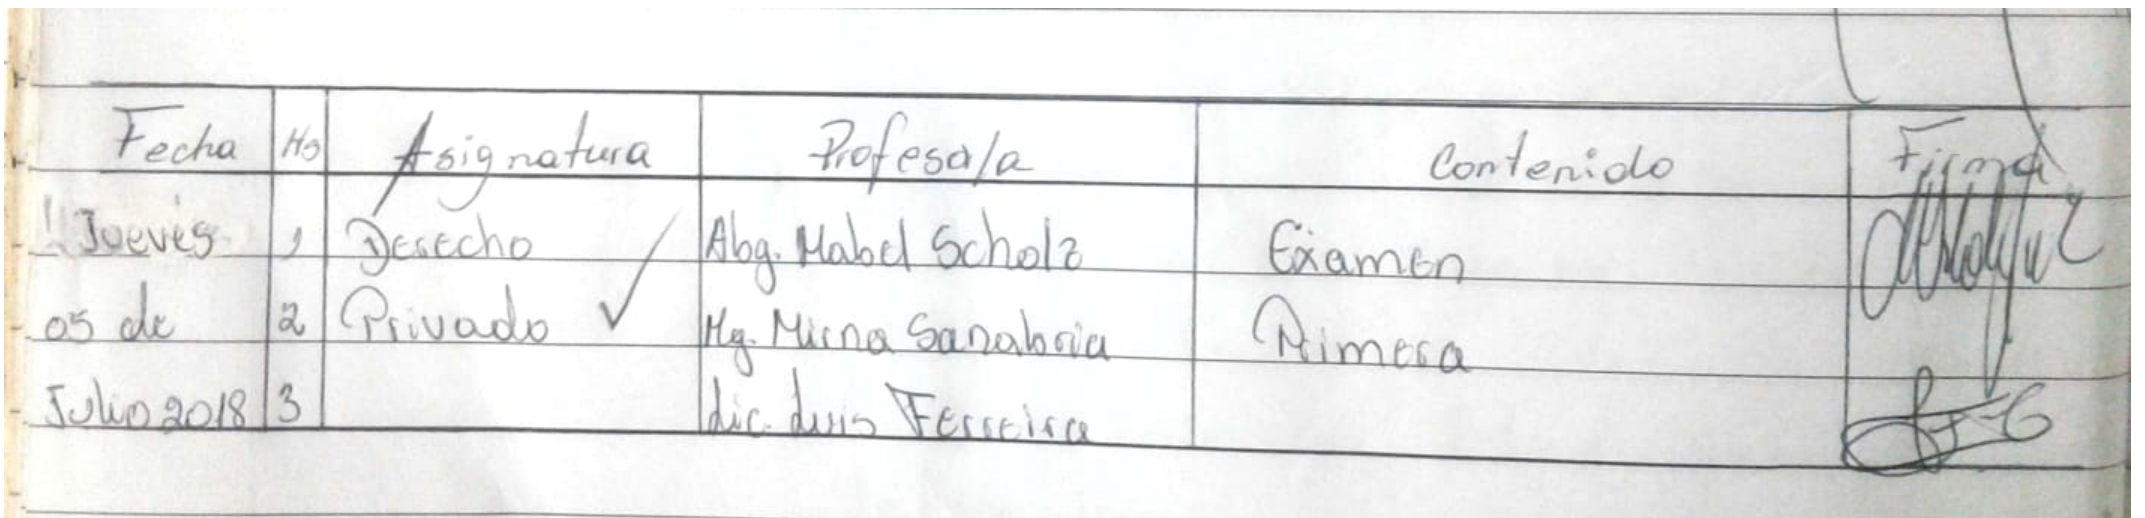 Fecha Hs Asignatura Profesor/a Contenido Firma
Jueves 1 Derecho Abg. Mabel Scholz Examen
05 de 2 Privado ✓ Mg. Mirna Sanabria Primera
Julio 2018 3 Lic. Luis Ferreira